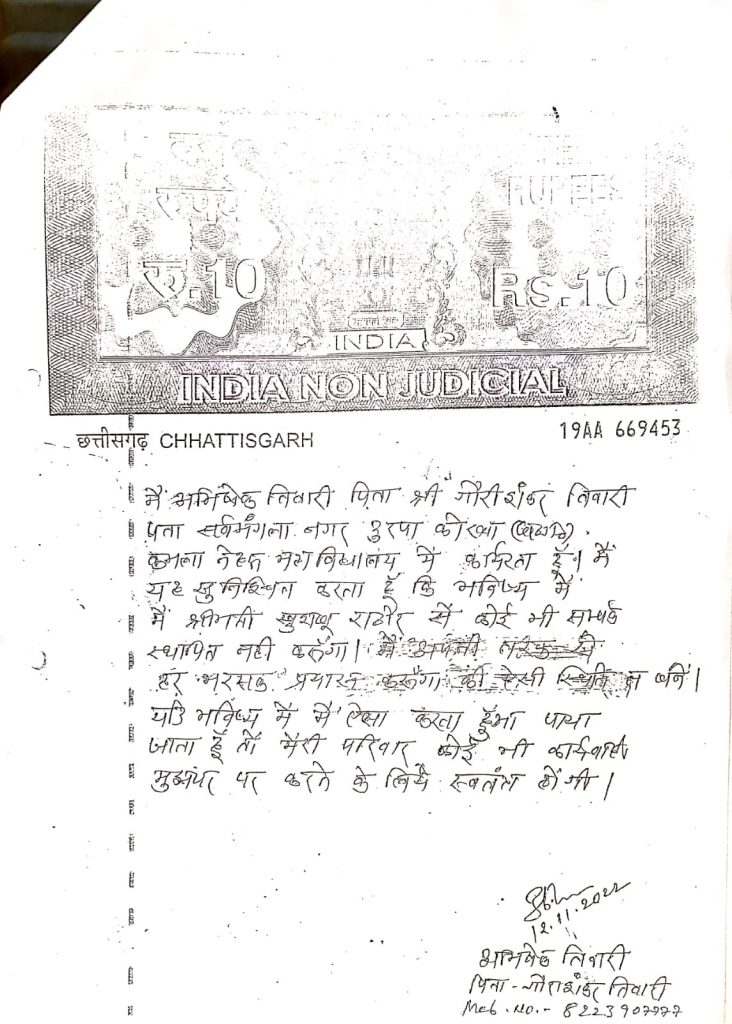 रुपये
RUPEES
रु.10
Rs.10
INDIA
INDIA NON JUDICIAL
छत्तीसगढ़ CHHATTISGARH
19AA 669453
मैं अभिषेक तिवारी पिता श्री गौरीशंकर तिवारी
पता सर्वमंगला नगर दुरपा कोरबा
कमला नेहरू महाविद्यालय में कार्यरत हूँ। मैं
यह सुनिश्चित करता हूँ कि भविष्य में
मैं श्रीमती खुशबू राठौर से कोई भी सम्पर्क
स्थापित नहीं करूँगा। मैं अपनी तरफ से
हर भरसक प्रयास करूँगा की ऐसी स्थिति न बनें।
यदि भविष्य में मैं ऐसा करता हुआ पाया
जाता हूँ तो मेरी परिवार कोई भी कार्यवाही
मुझपर पर करने के लिये स्वतंत्र होंगी।
12.11.2022
अभिषेक तिवारी
पिता - गौरीशंकर तिवारी
Mob. No. - 8223907777